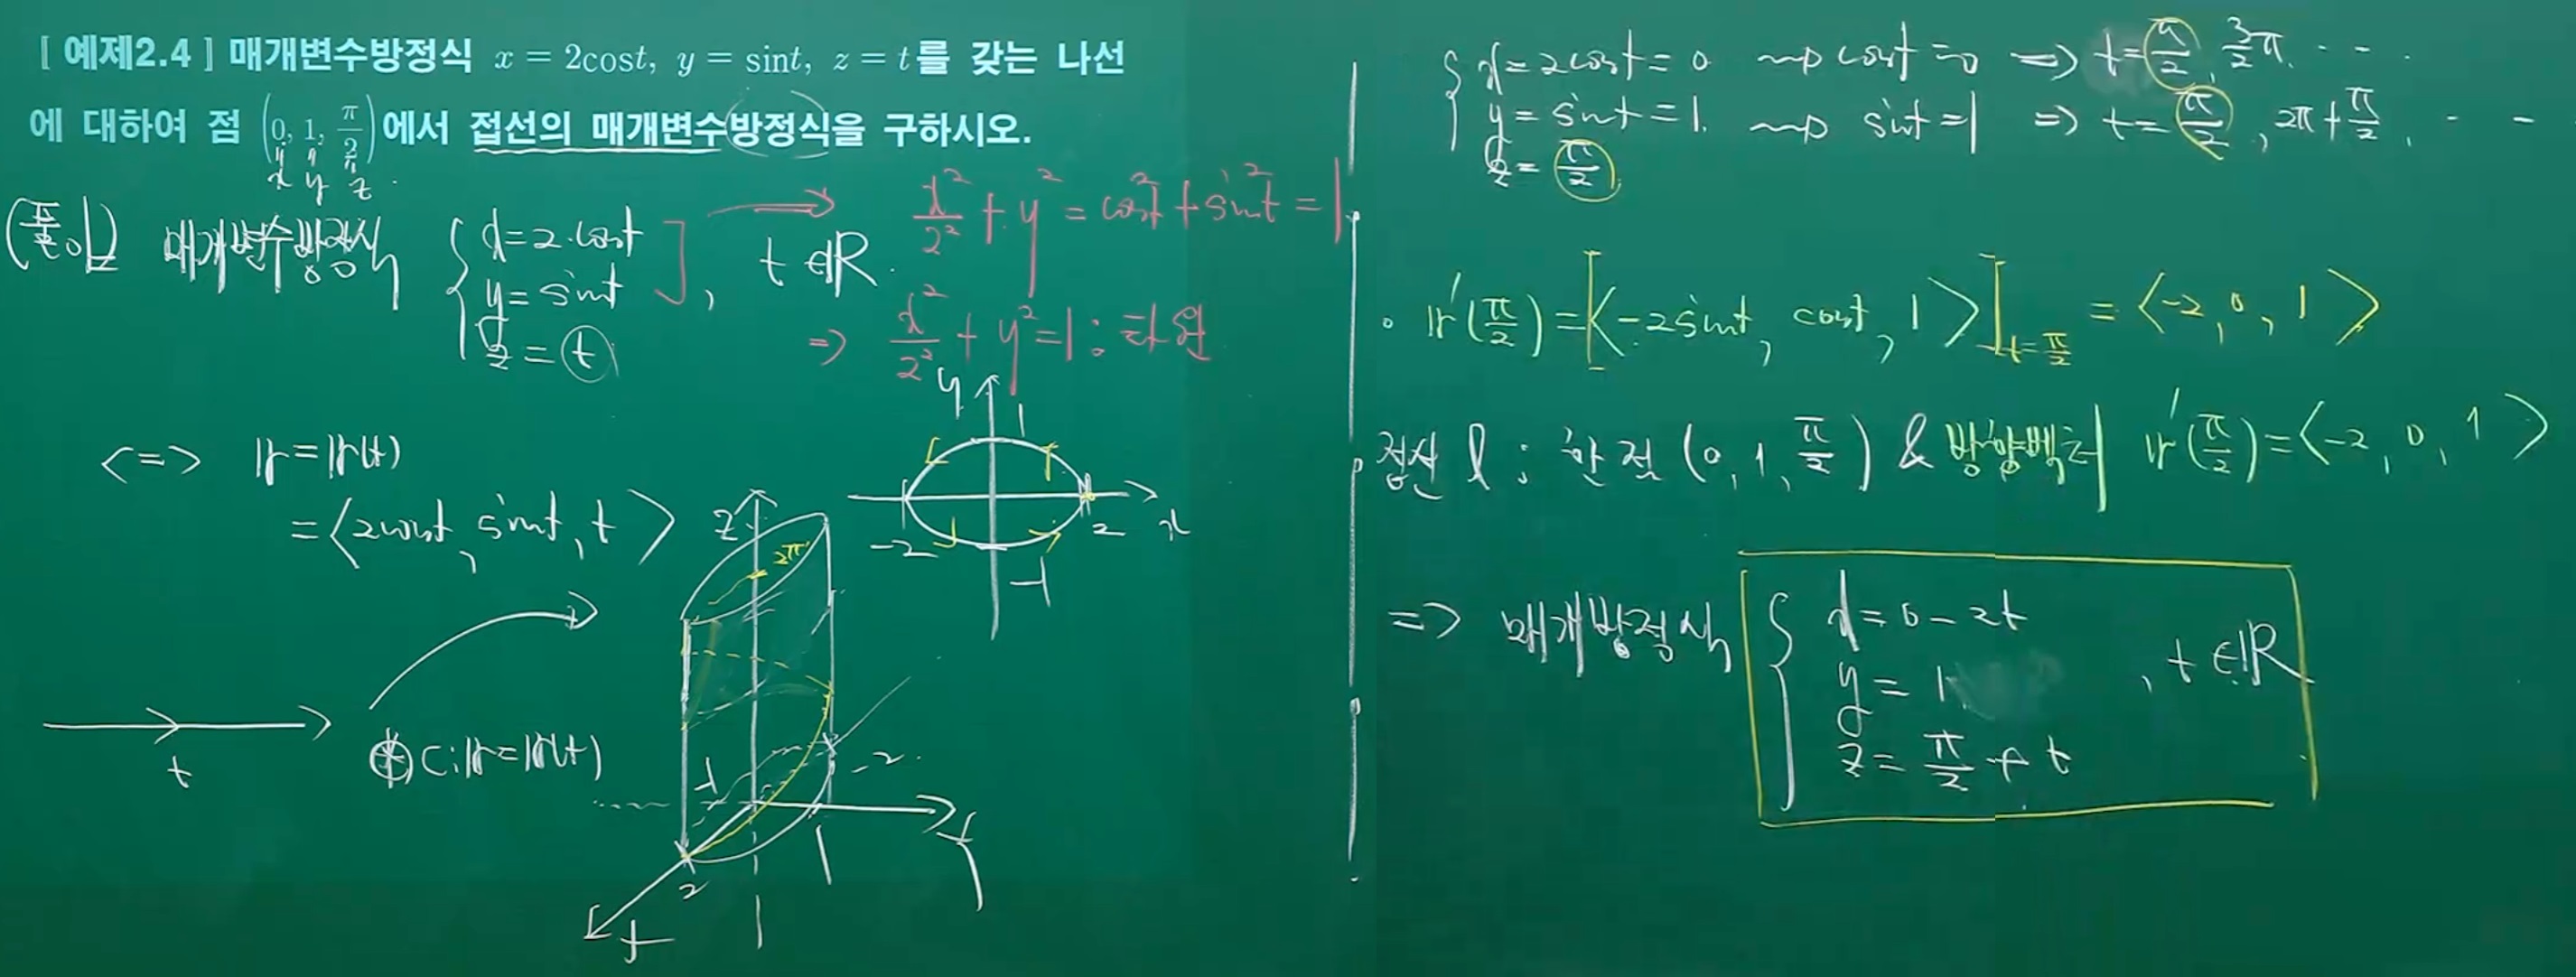 [ 예제2.4 ] 매개변수방정식 x = 2cost, y = sint, z = t를 갖는 나선
에 대하여 점 (0, 1, π/2)에서 접선의 매개변수방정식을 구하시오.
x y z
(풀이) 매개변수방정식 { x = 2·cost
y = sint
z = t , t ∈ ℝ.
x²/2² + y² = cos²t + sin²t = 1
⇒ x²/2² + y² = 1 : 타원
<=> r = r(t)
= <2cost, sint, t>
y
1
-2 2 x
-1
z
2π
t
⊛ C : r = r(t)
-1 -2
2 1 y
x
{ x = 2cost = 0 ⇝ cost = 0 ⇒ t = π/2, 3/2π, ...
y = sint = 1 ⇝ sint = 1 ⇒ t = π/2, 2π + π/2, ...
z = π/2
• r'(π/2) = [<-2sint, cost, 1>]t=π/2 = <-2, 0, 1>
접선 l : 한 점 (0, 1, π/2) & 방향벡터 r'(π/2) = <-2, 0, 1>
⇒ 매개방정식 { x = 0 - 2t
y = 1
z = π/2 + t , t ∈ ℝ